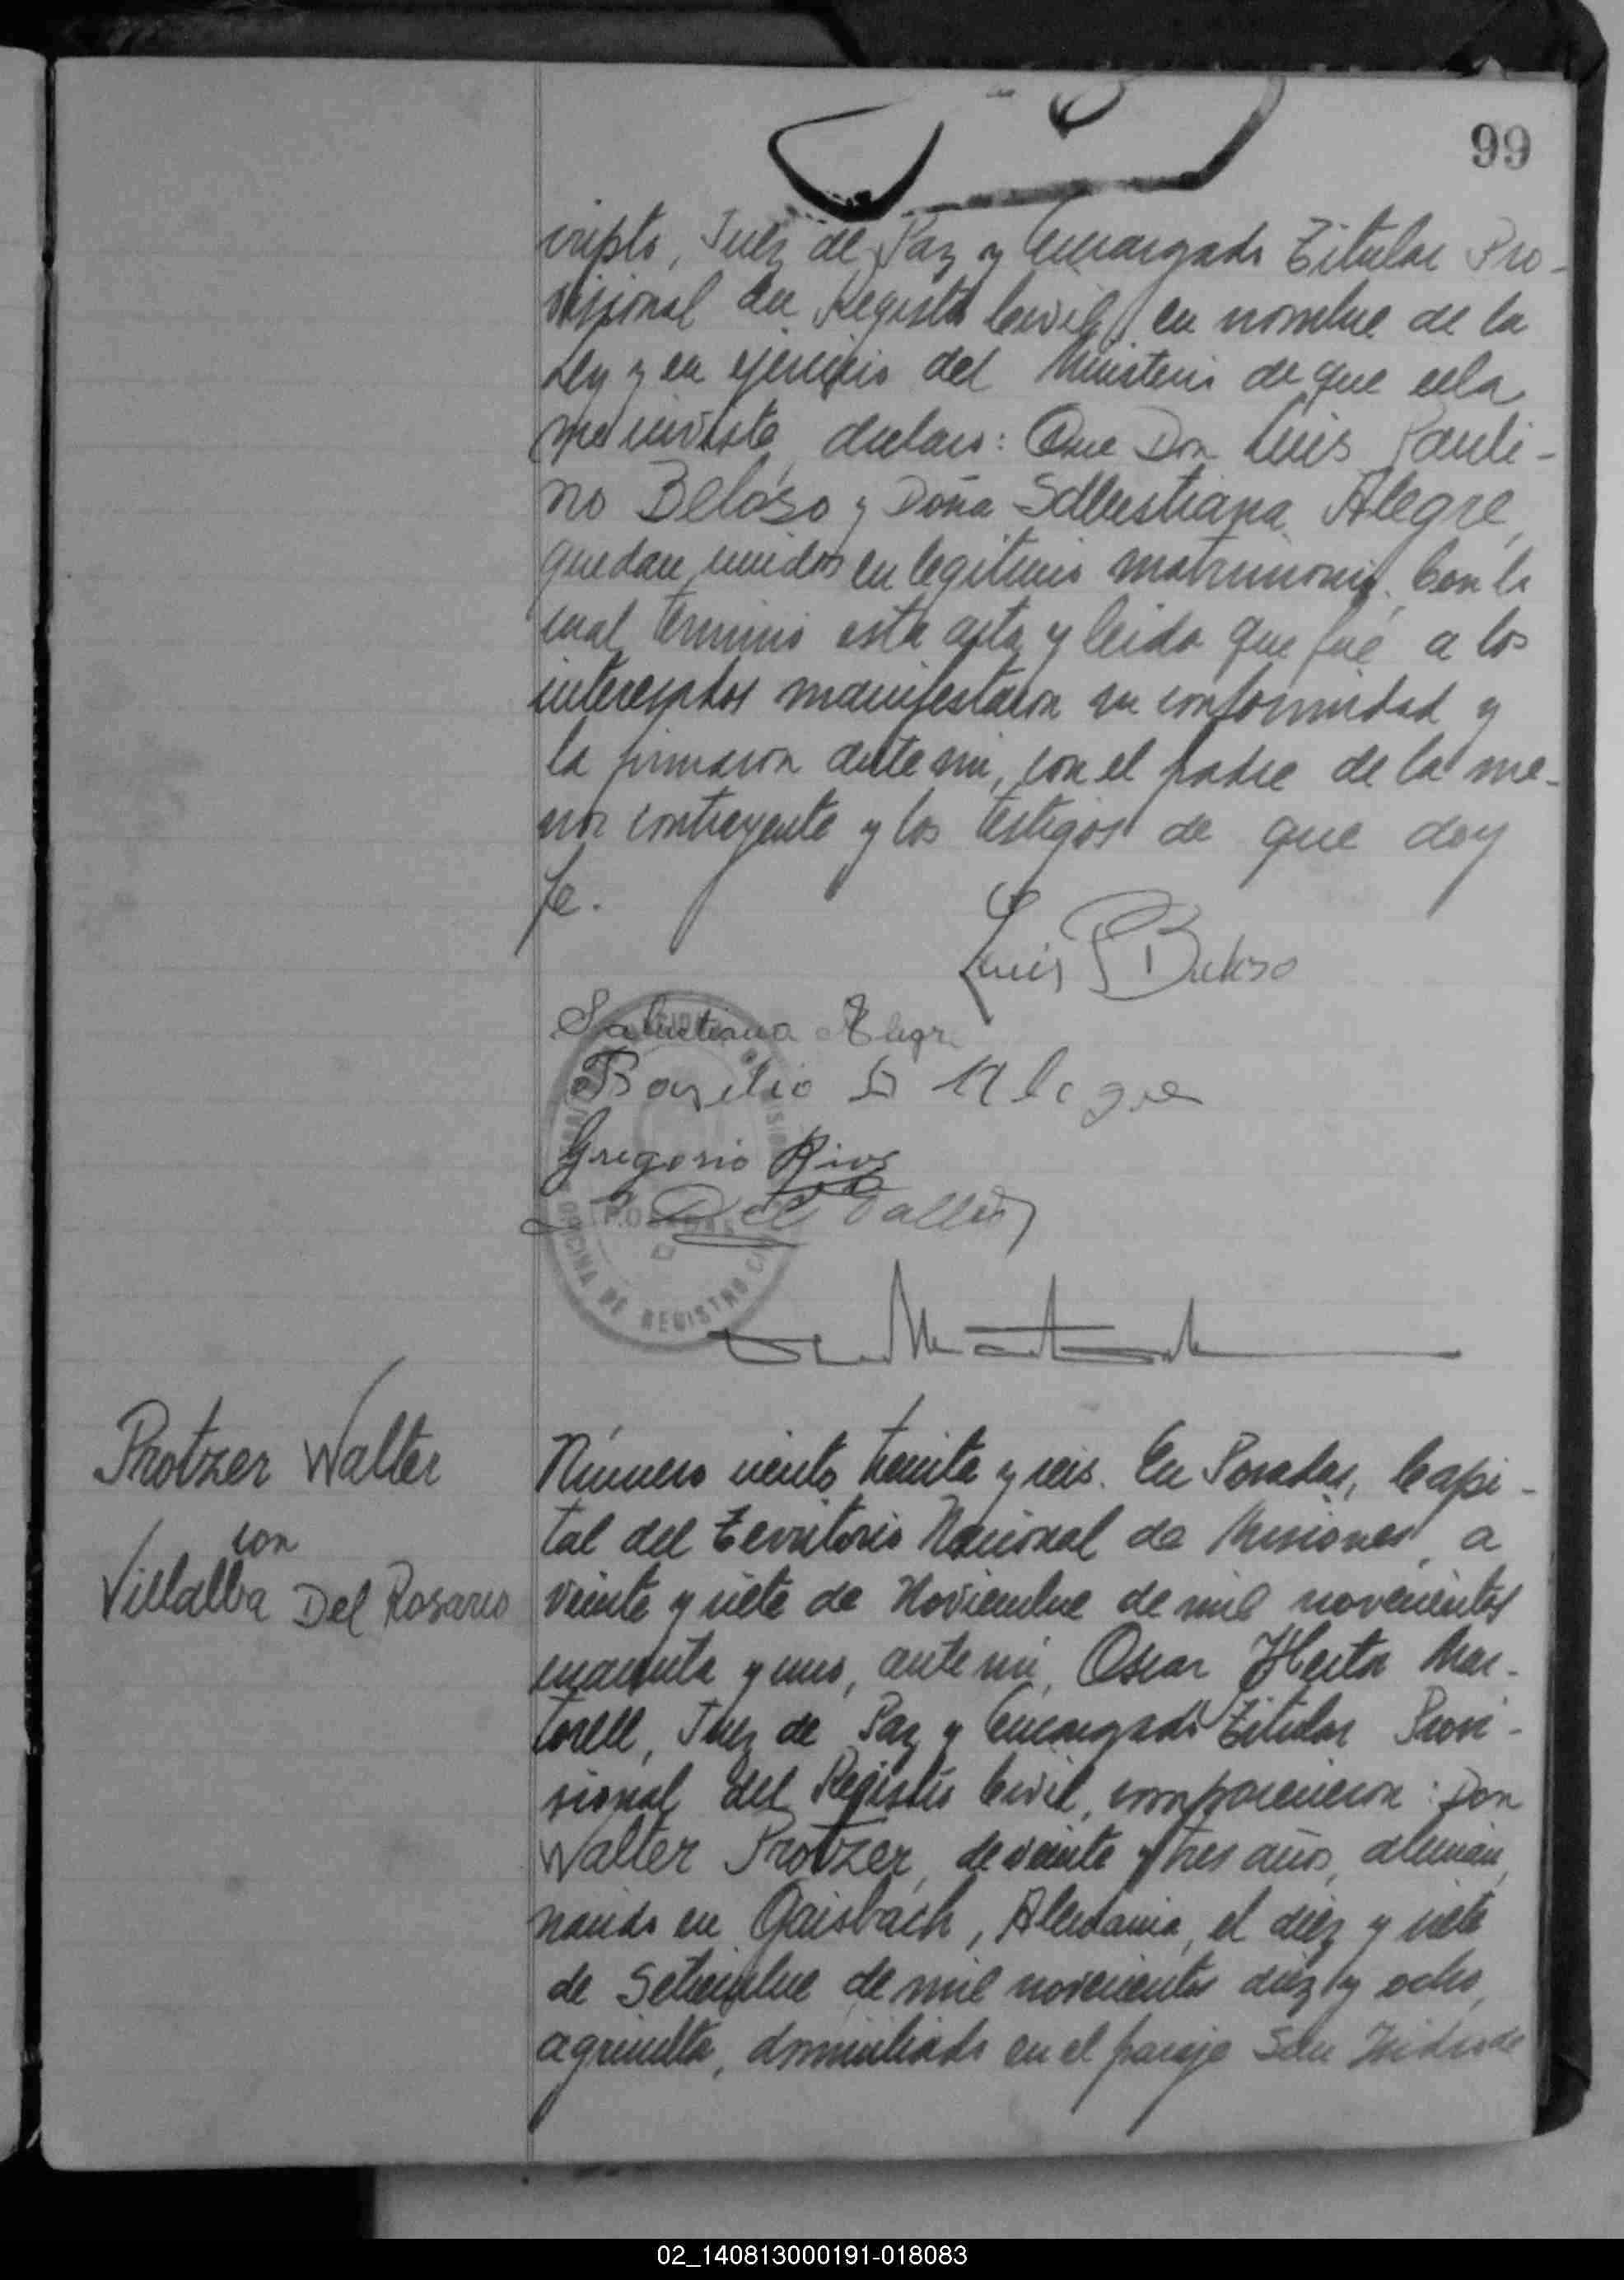 99
cripto, Juez de Paz y Encargado Titular Pro-
visional del Registro Civil, en nombre de la
Ley y en ejercicio del Ministerio de que ella
me inviste, declaro: Que Don Luis Pauli-
no Beloso y Doña Sallustiana Alegre,
quedan unidos en legítimo matrimonio. Con lo
cual termino esta acta y leida que fué a los
interesados manifestaron su conformidad y
la firmaron ante mi, con el padre de la me-
nor contrayente y los testigos de que doy
fe.
Luis P Beloso
Salustiana Alegre
Basilio Alegre
Gregorio Rios
Del Valle
OFICINA DE REGISTRO CIVIL
POSADAS
Protzer Walter
con
Villalba Del Rosario
Número ciento treinta y seis. En Posadas, Capi-
tal del Territorio Nacional de Misiones, a
veinte y siete de Noviembre de mil novecientos
cuarenta y uno, ante mi, Oscar Hector Mar-
torell, Juez de Paz y Encargado Titular Provi-
sional del Registro Civil, comparecieron: Don
Walter Protzer, de veinte y tres años, alemán,
nacido en Gaisbach, Alemania, el diez y siete
de Setiembre de mil novecientos diez y ocho,
agricultor, domiciliado en el paraje San Isidro de
02_140813000191-018083